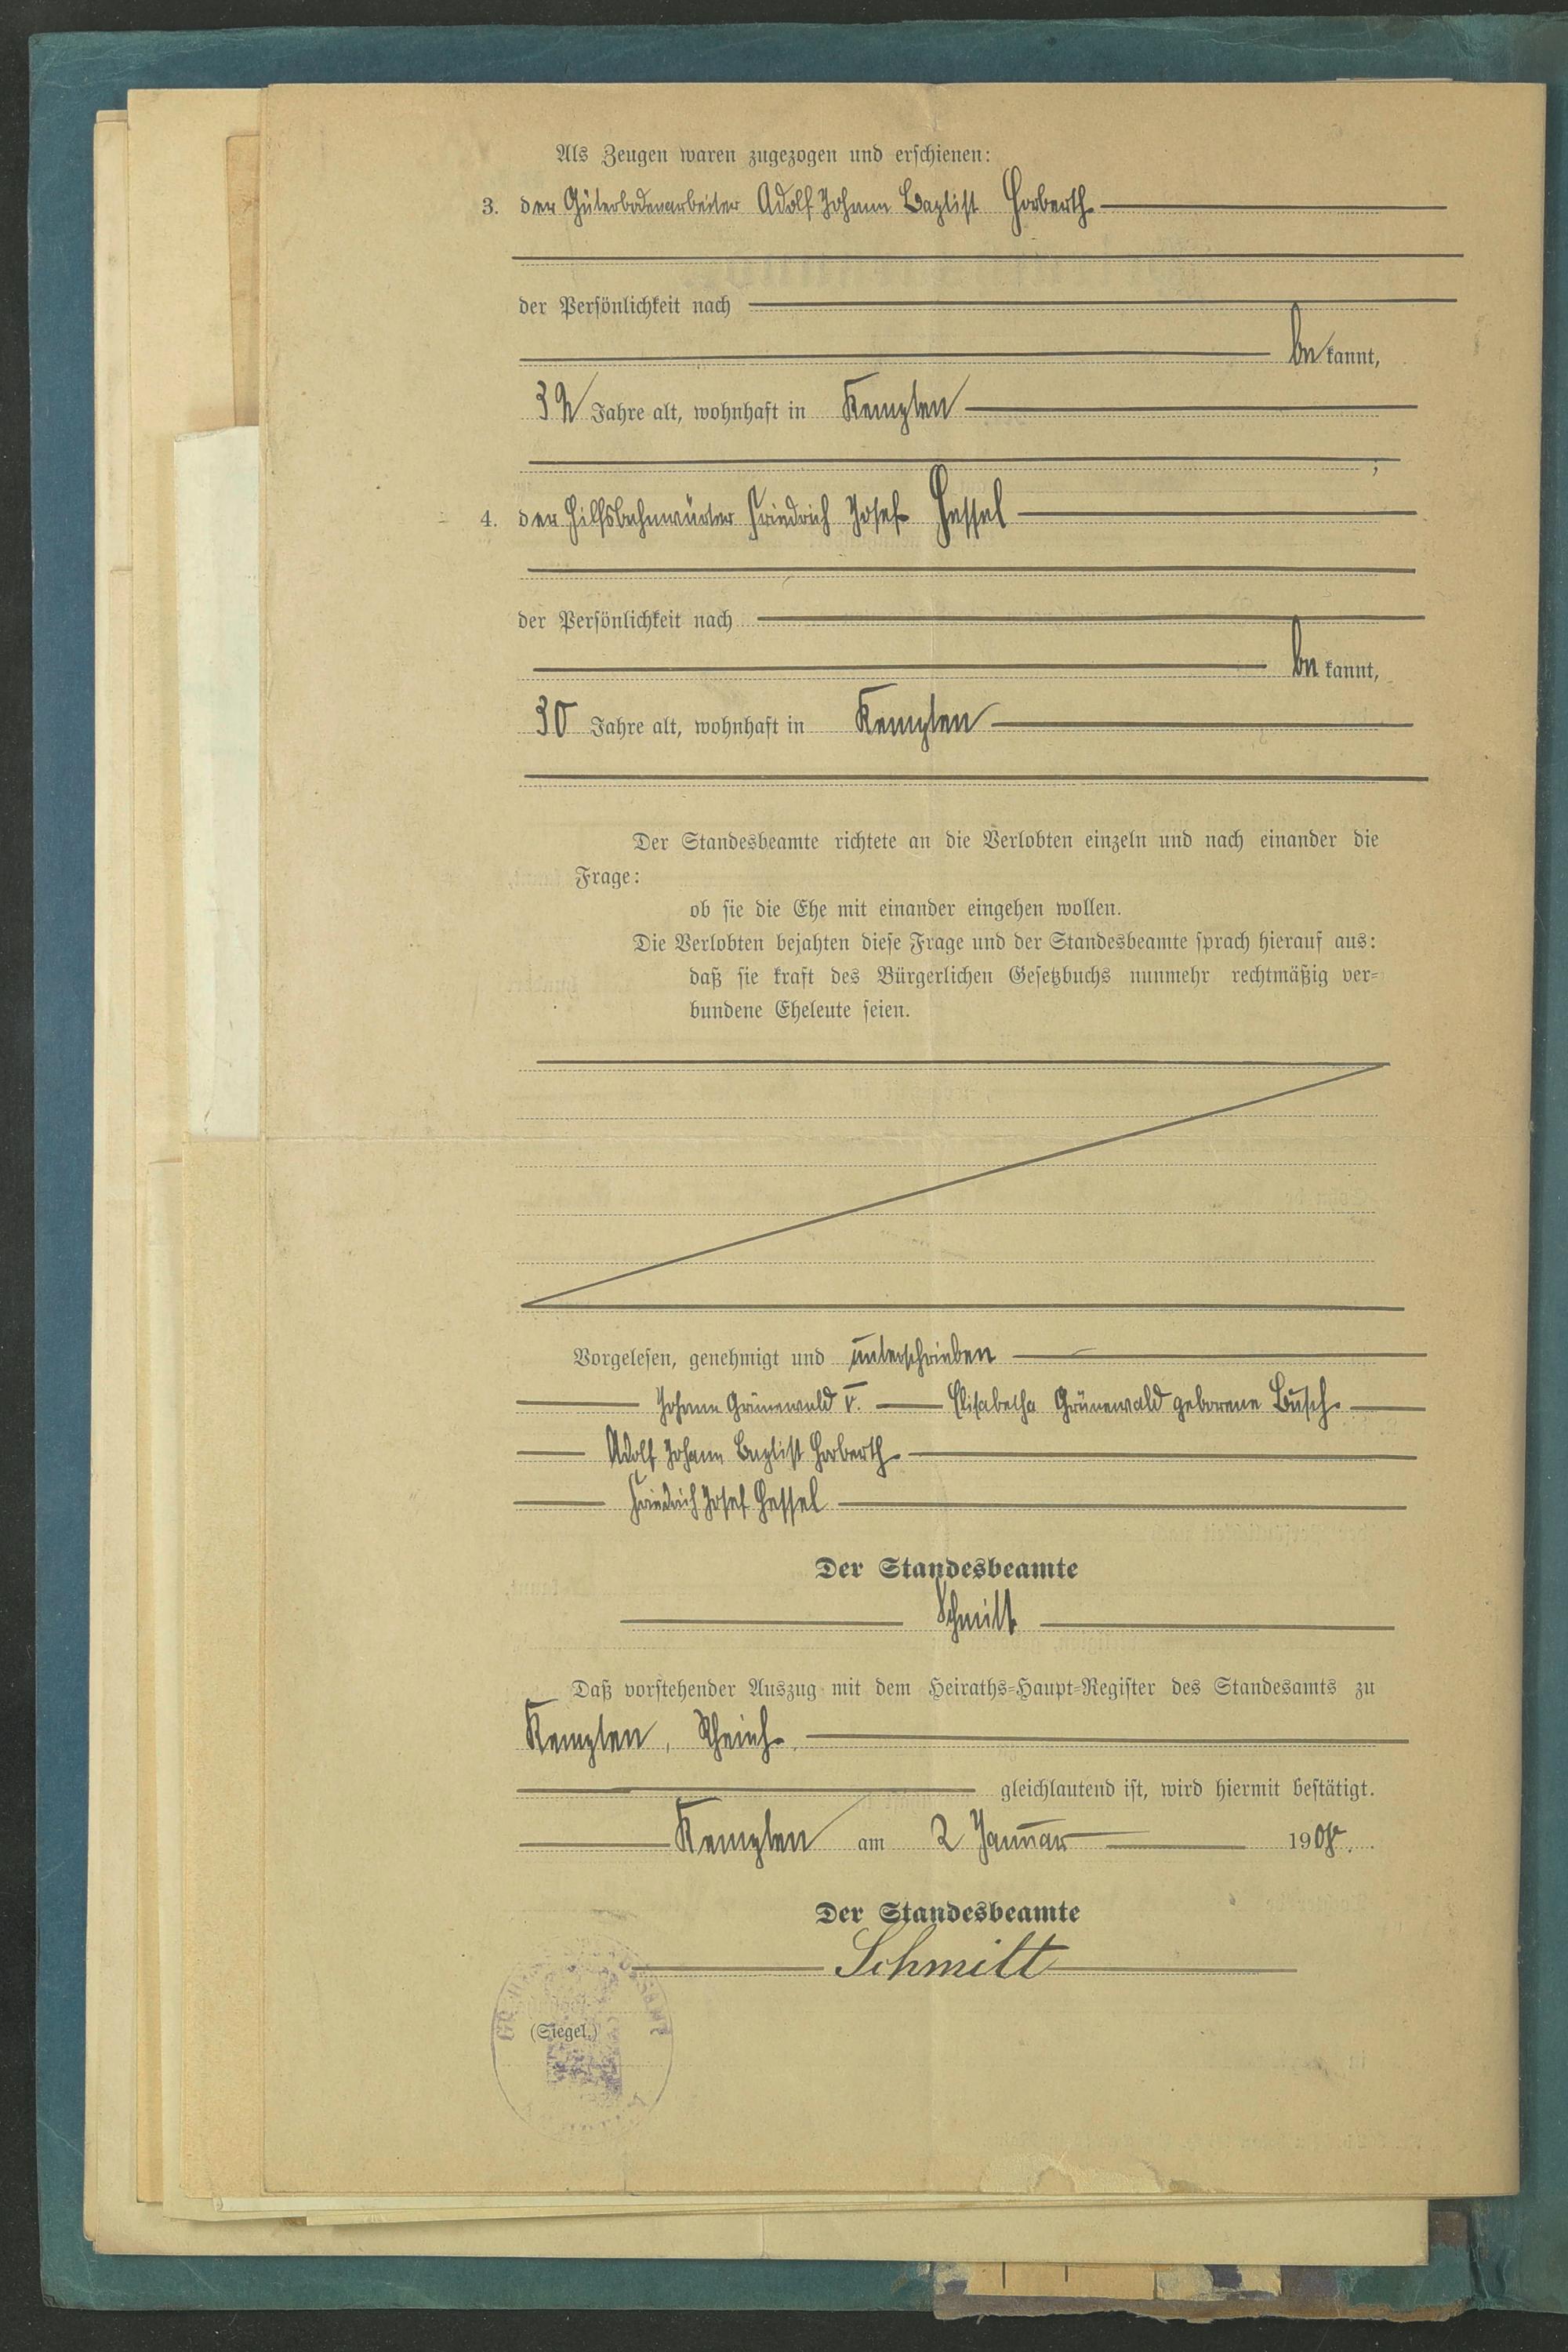 Als Zeugen waren zugezogen und erschienen:
3. der Güterbodenarbeiter Adolf Johann Baptist Horberth
der Persönlichkeit nach
bekannt,
32 Jahre alt, wohnhaft in Kempten
;
4. der Hilfsbahnwärter Friedrich Josef Hessel
der Persönlichkeit nach
bekannt,
30 Jahre alt, wohnhaft in Kempten
Der Standesbeamte richtete an die Verlobten einzeln und nach einander die
Frage:
ob sie die Ehe mit einander eingehen wollen.
Die Verlobten bejahten diese Frage und der Standesbeamte sprach hierauf aus:
daß sie kraft des Bürgerlichen Gesetzbuchs nunmehr rechtmäßig ver-
bundene Eheleute seien.
Vorgelesen, genehmigt und unterschrieben
Johann Grünewald V. Elisabetha Grünewald geborene Busch
Adolf Johann Baptist Horberth
Friedrich Josef Hessel
Der Standesbeamte
Schmitt
Daß vorstehender Auszug mit dem Heiraths-Haupt-Register des Standesamts zu
Kempten, Rheinh.
gleichlautend ist, wird hiermit bestätigt.
Kempten am 2 Januar 190
Der Standesbeamte
Schmitt
(Siegel.)